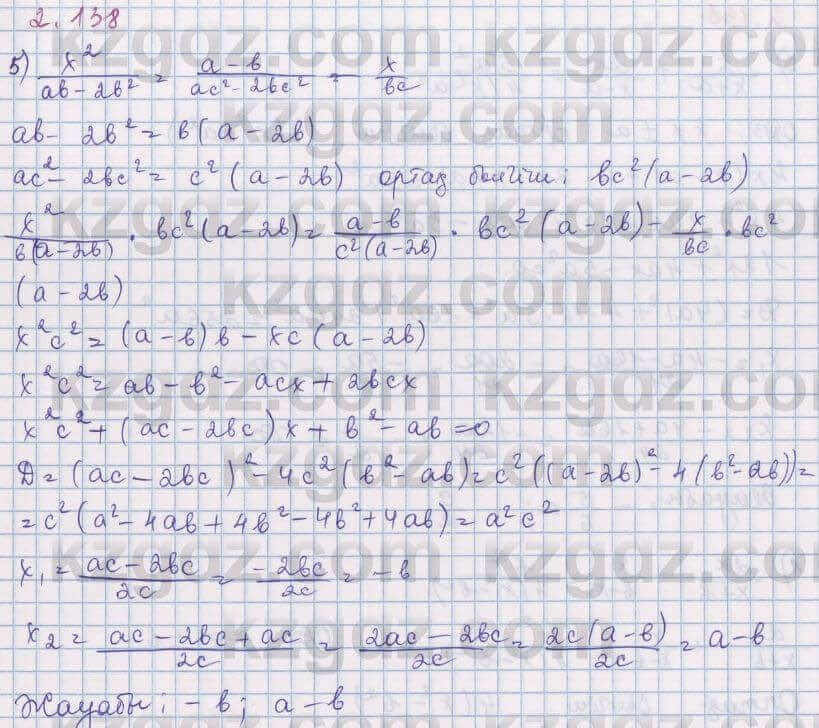 2.138
5) x²/(ab-2b²) = (a-b)/(ac²-2bc²) - x/(bc)
ab - 2b² = b(a-2b)
ac² - 2bc² = c²(a-2b) ортақ бөлгіш: bc²(a-2b)
x²/(b(a-2b)) · bc²(a-2b) = (a-b)/(c²(a-2b)) · bc²(a-2b) - x/(bc) · bc²
(a-2b)
x²c² = (a-b)b - xc(a-2b)
x²c² = ab - b² - acx + 2bcx
x²c² + (ac-2bc)x + b² - ab = 0
D = (ac-2bc)² - 4c²(b²-ab) = c²((a-2b)² - 4(b²-ab)) =
= c²(a² - 4ab + 4b² - 4b² + 4ab) = a²c²
x₁ = (ac-2bc)/(2c) = (-2bc)/(2c) = -b
x₂ = (ac-2bc+ac)/(2c) = (2ac-2bc)/(2c) = (2c(a-b))/(2c) = a-b
Жауабы: -b; a-b
kzgdz.com